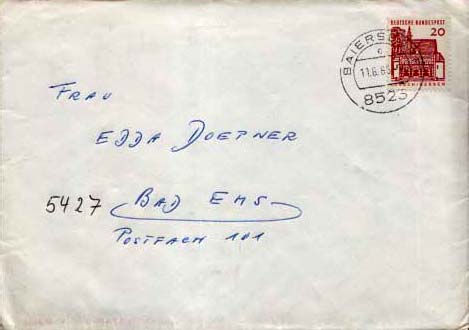 DEUTSCHE BUNDESPOST
20
8523
Frau
EDDA DOEPNER
5427 BAD EMS
POSTFACH 101